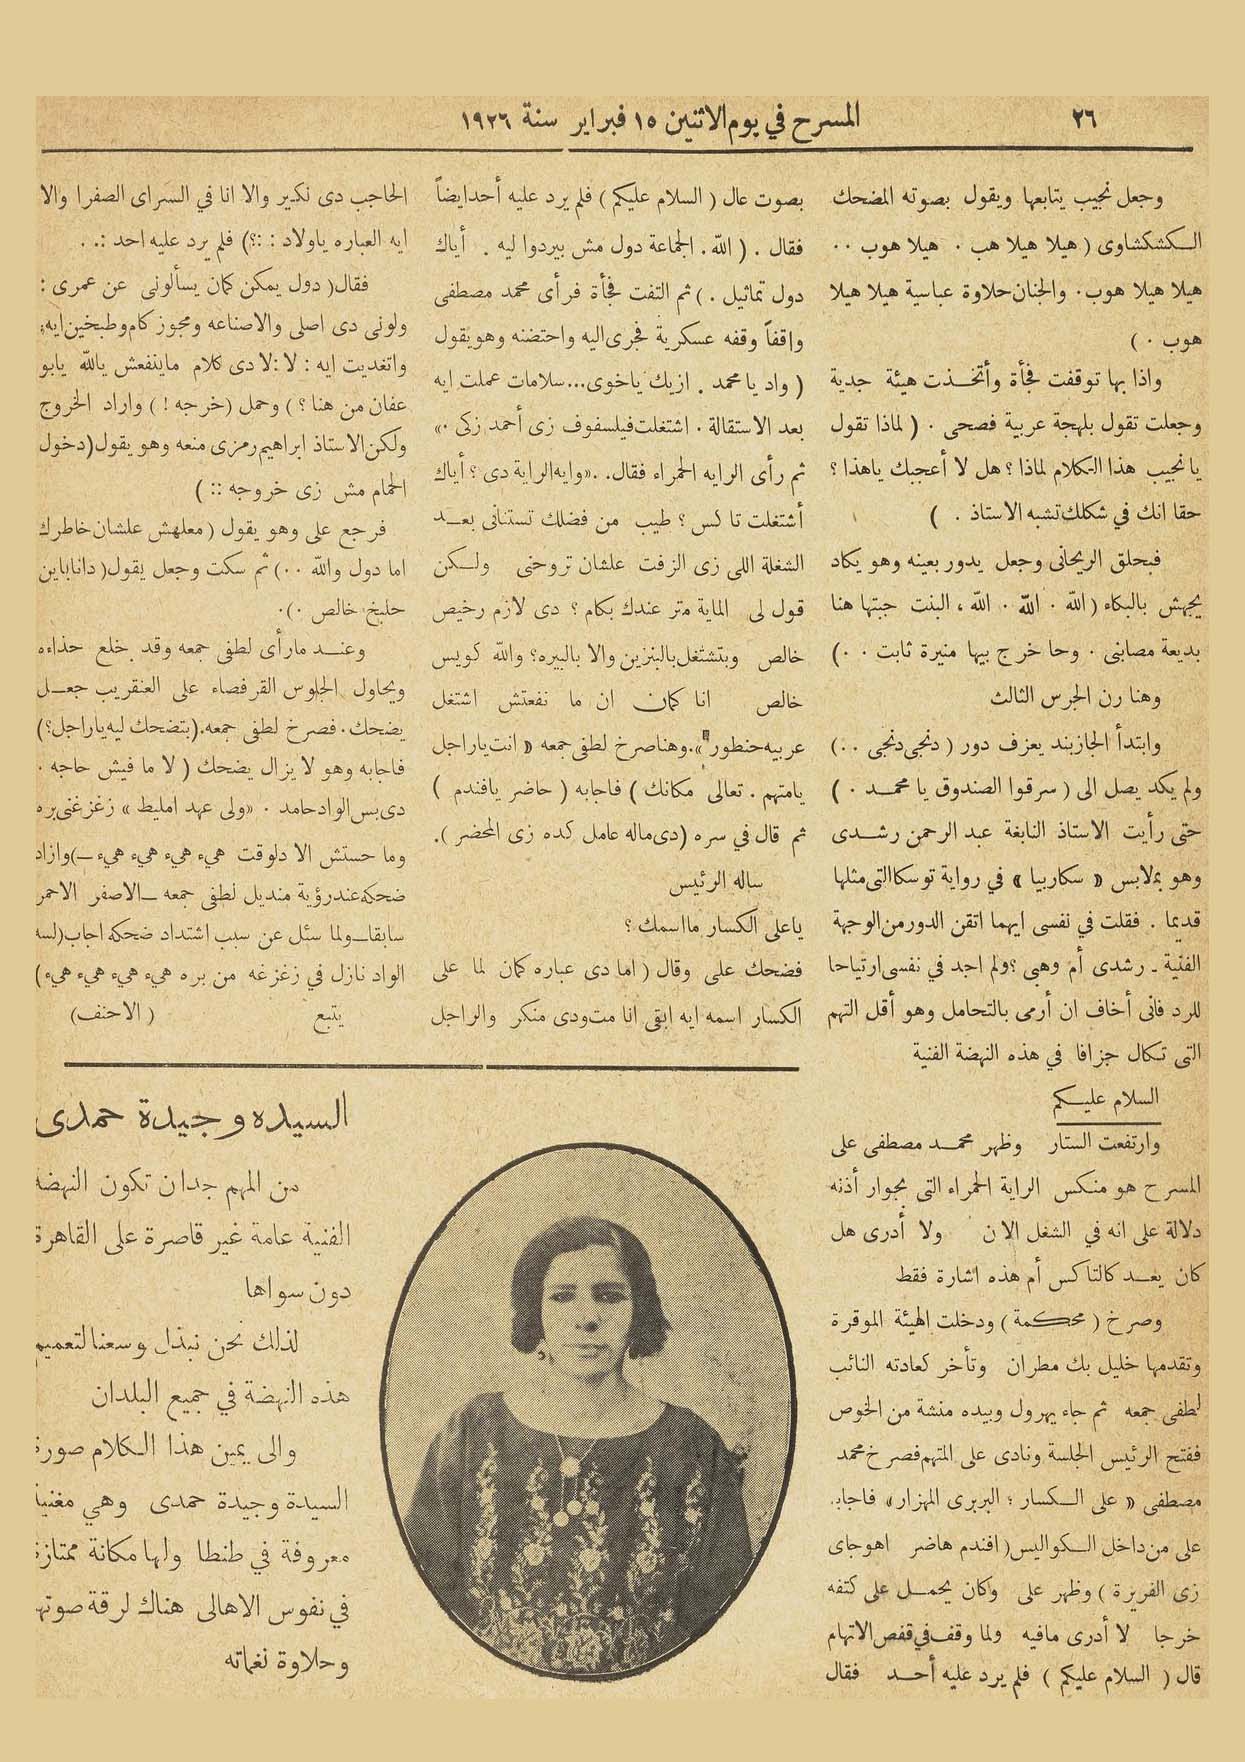 ٢٦
المسرح في يوم الاثنين ١٥ فبراير سنة ١٩٢٦
وجعل نجيب يتابعها ويقول بصوته المضحك
الكشكشاوى ( هيلا هيلا هب ٠ هيلا هوب ٠٠
هيلا هيلا هوب٠ والجنان حلاوة عباسية هيلا هيلا
هوب ٠ )
واذا بها توقفت فجأة وأتخذت هيئة جدية
وجعلت تقول بلهجة عربية فصحى ٠ ( لماذا تقول
يا نجيب هذا الكلام لماذا ؟ هل لا أعجبك ياهذا ؟
حقا انك في شكلك تشبه الاستاذ . )
فبحلق الريحانى وجعل يدور بعينه وهو يكاد
يجهش بالبكاء ( الله ٠ الله ٠ الله ، البنت جبتها هنا
بديعة مصابنى ٠ وحا خرج بيها منيرة ثابت ٠ ٠)
وهنا رن الجرس الثالث
وابتدأ الجازبند يعزف دور ( دنجى دنجى ٠٠)
ولم يكد يصل الى ( سرقوا الصندوق يا محمد ٠ )
حتى رأيت الاستاذ النابغة عبد الرحمن رشدى
وهو بملابس « سكاربيا » في رواية توسكا التى مثلها
قديما . فقلت في نفسى ايهما اتقن الدور من الوجهة
الفنية ـ رشدى أم وهبى ؟ ولم اجد في نفسى ارتياحا
للرد فانى أخاف ان أرمى بالتحامل وهو أقل التهم
التى تكال جزافا في هذه النهضة الفنية
السلام عليكم
وارتفعت الستار وظهر محمد مصطفى على
المسرح هو منكس الراية الحمراء التى بجوار أذنه
دلالة على انه في الشغل الان ولا أدرى هل
كان يعد كالتاكس أم هذه اشارة فقط
وصرخ ( محكمة ) ودخلت الهيئة الموقرة
وتقدمها خليل بك مطران وتأخر كعادته النائب
لطفى جمعه ثم جاء يهرول وبيده منشة من الخوص
ففتح الرئيس الجلسة ونادى على المتهم فصرخ محمد
مصطفى « على الكسار ؛ البربرى المهزار » فاجابه
على من داخل الكواليس ( افندم هاضر اهوجاى
زى الفريرة ) وظهر على وكان يحمل على كتفه
خرجا لا أدرى مافيه ولما وقف في قفص الاتهام
قال ( السلام عليكم ) فلم يرد عليه أحد فقال
بصوت عال ( السلام عليكم ) فلم يرد عليه أحد ايضاً
فقال . ( الله. الجماعة دول مش بيردوا ليه . أياك
دول تماثيل . ) ثم التفت فجأة فرأى محمد مصطفى
واقفاً وقفه عسكرية فجرى اليه واحتضنه وهو يقول
( واد يا محمد . ازيك ياخوى... سلامات عملت ايه
بعد الاستقالة ٠ اشتغلت فيلسفوف زى أحمد زكى ٠»
ثم رأى الرايه الحمراء فقال. .«وايه الراية دى ؟ أياك
أشتغلت تاكس ؟ طيب من فضلك تستنانى بعد
الشغلة اللى زى الزفت علشان تروحنى ولكن
قول لى الماية متر عندك بكام ؟ دى لازم رخيص
خالص وبتشتغل بالبنزين والا بالبيره؟ والله كويس
خالص انا كمان ان ما نفعتش اشتغل
عربيه حنطور ».وهنا صرخ لطفى جمعه « انت ياراجل
يامتهم . تعالى مكانك ) فاجابه ( حاضر يافندم )
ثم قال في سره (دى ماله عامل كده زى المحضر ).
ساله الرئيس
يا على الكسار ما اسمك ؟
فضحك على وقال ( اما دى عباره كمان لما على
الكسار اسمه ايه ابقى انا مت ودى منكر والراجل
الحاجب دى نكير والا انا في السراى الصفرا والا
ايه العباره ياولاد : :؟) فلم يرد عليه احد :. .
فقال( دول يمكن كمان يسألونى عن عمرى :
ولونى دى اصلى والاصناعه ومجوز كام وطبخين ايه،
واتغديت ايه : لا : لا دى كلام ماينفعش يالله يابو
عفان من هنا ؟ ) وحمل ( خرجه ! ) واراد الخروج
ولكن الاستاذ ابراهيم رمزى منعه وهو يقول (دخول
الحمام مش زى خروجه :: )
فرجع على وهو يقول ( معلهش علشان خاطرك
اما دول والله ٠٠) ثم سكت وجعل يقول( دانا باين
حلبخ خالص ٠)٠
وعند مارأى لطفى جمعه وقد خلع حذاءه
ويحاول الجلوس القرفصاء على العنقريب جعل
يضحك. فصرخ لطفى جمعه.(بتضحك ليه ياراجل؟)
فاجابه وهو لا يزال يضحك ( لا ما فيش حاجه ٠
دى بس الواد حامد ٠ «ولى عهد امليط » زغزغنى بره
وما حستش الا دلوقت هىء هىء هىء هىء ـ) وازاد
ضحكه عند رؤية منديل لطفى جمعه ـ الاصفر الاحمر
سابقا ـ ولما سئل عن سبب اشتداد ضحكه اجاب(لسه
الواد نازل في زغزغه من بره هىء هىء هىء هىء )
يتبع ( الاحنف)
السيده وجيدة حمدى
من المهم جدان تكون النهضة
الفنية عامة غير قاصرة على القاهرة
دون سواها
لذلك نحن نبذل وسعنا لتعميم
هذه النهضة في جميع البلدان
والى يمين هذا الكلام صورة
السيدة وجيدة حمدى وهي مغنية
معروفة في طنطا ولها مكانة ممتازة
في نفوس الاهالى هناك لرقة صوتها
وحلاوة نغماته